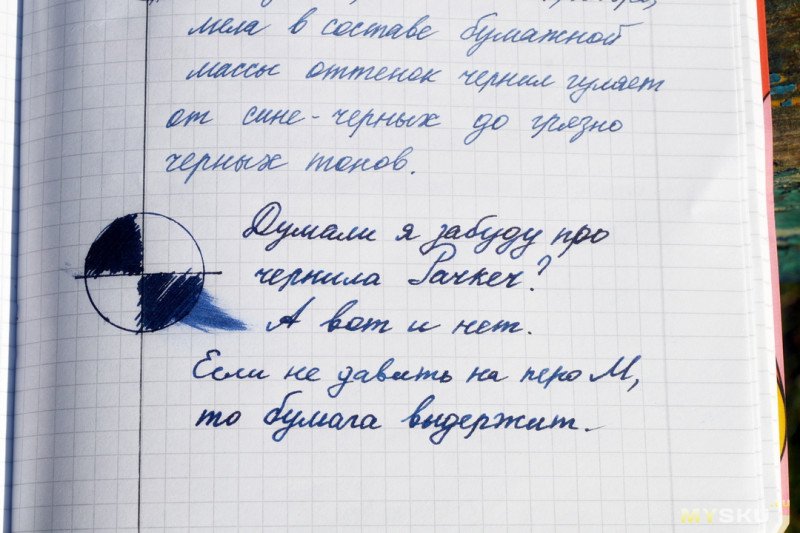 мела в составе бумажной
массы оттенок чернил гуляет
от сине-черных до грязно
черных тонов.
Думали я забуду про
чернила Рачкеч?
А вот и нет.
Если не давить на перо М,
то бумага выдержит.
MYSKU.RU